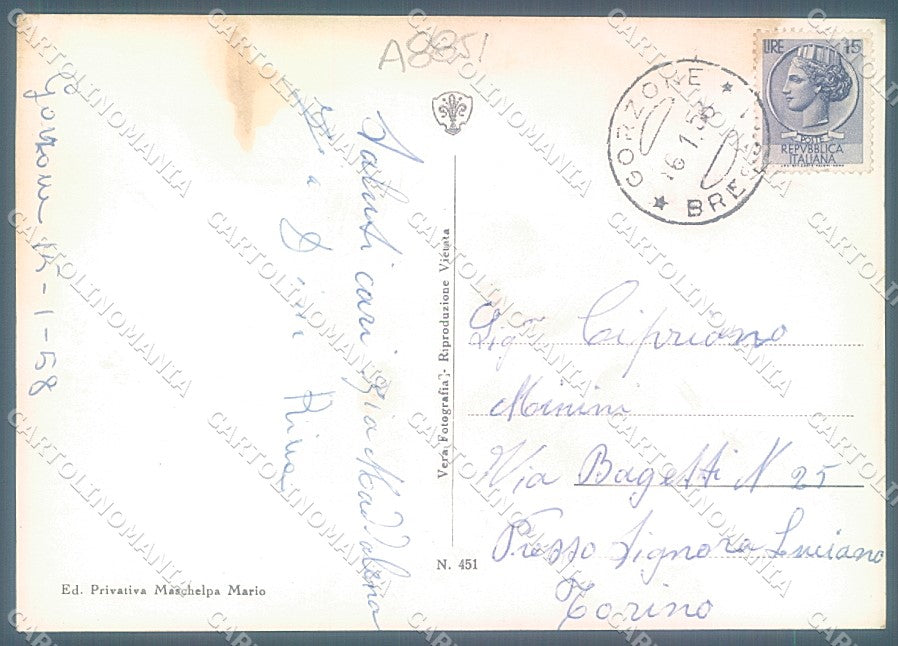 A8851
Gorzone 15-1-58
Saluti cari zia Maddalena
zia e
Rina
Vera Fotografia - Riproduzione Vietata
N. 451
Ed. Privativa Maschelpa Mario
GORZONE
16.1.58
BRE
LIRE 15
POSTE
REPVBBLICA
ITALIANA
Sigr Cipriano
Menini
Via Bagetti N 25
Presso Signora Luciano
Torino
CARTOLINOMANIA